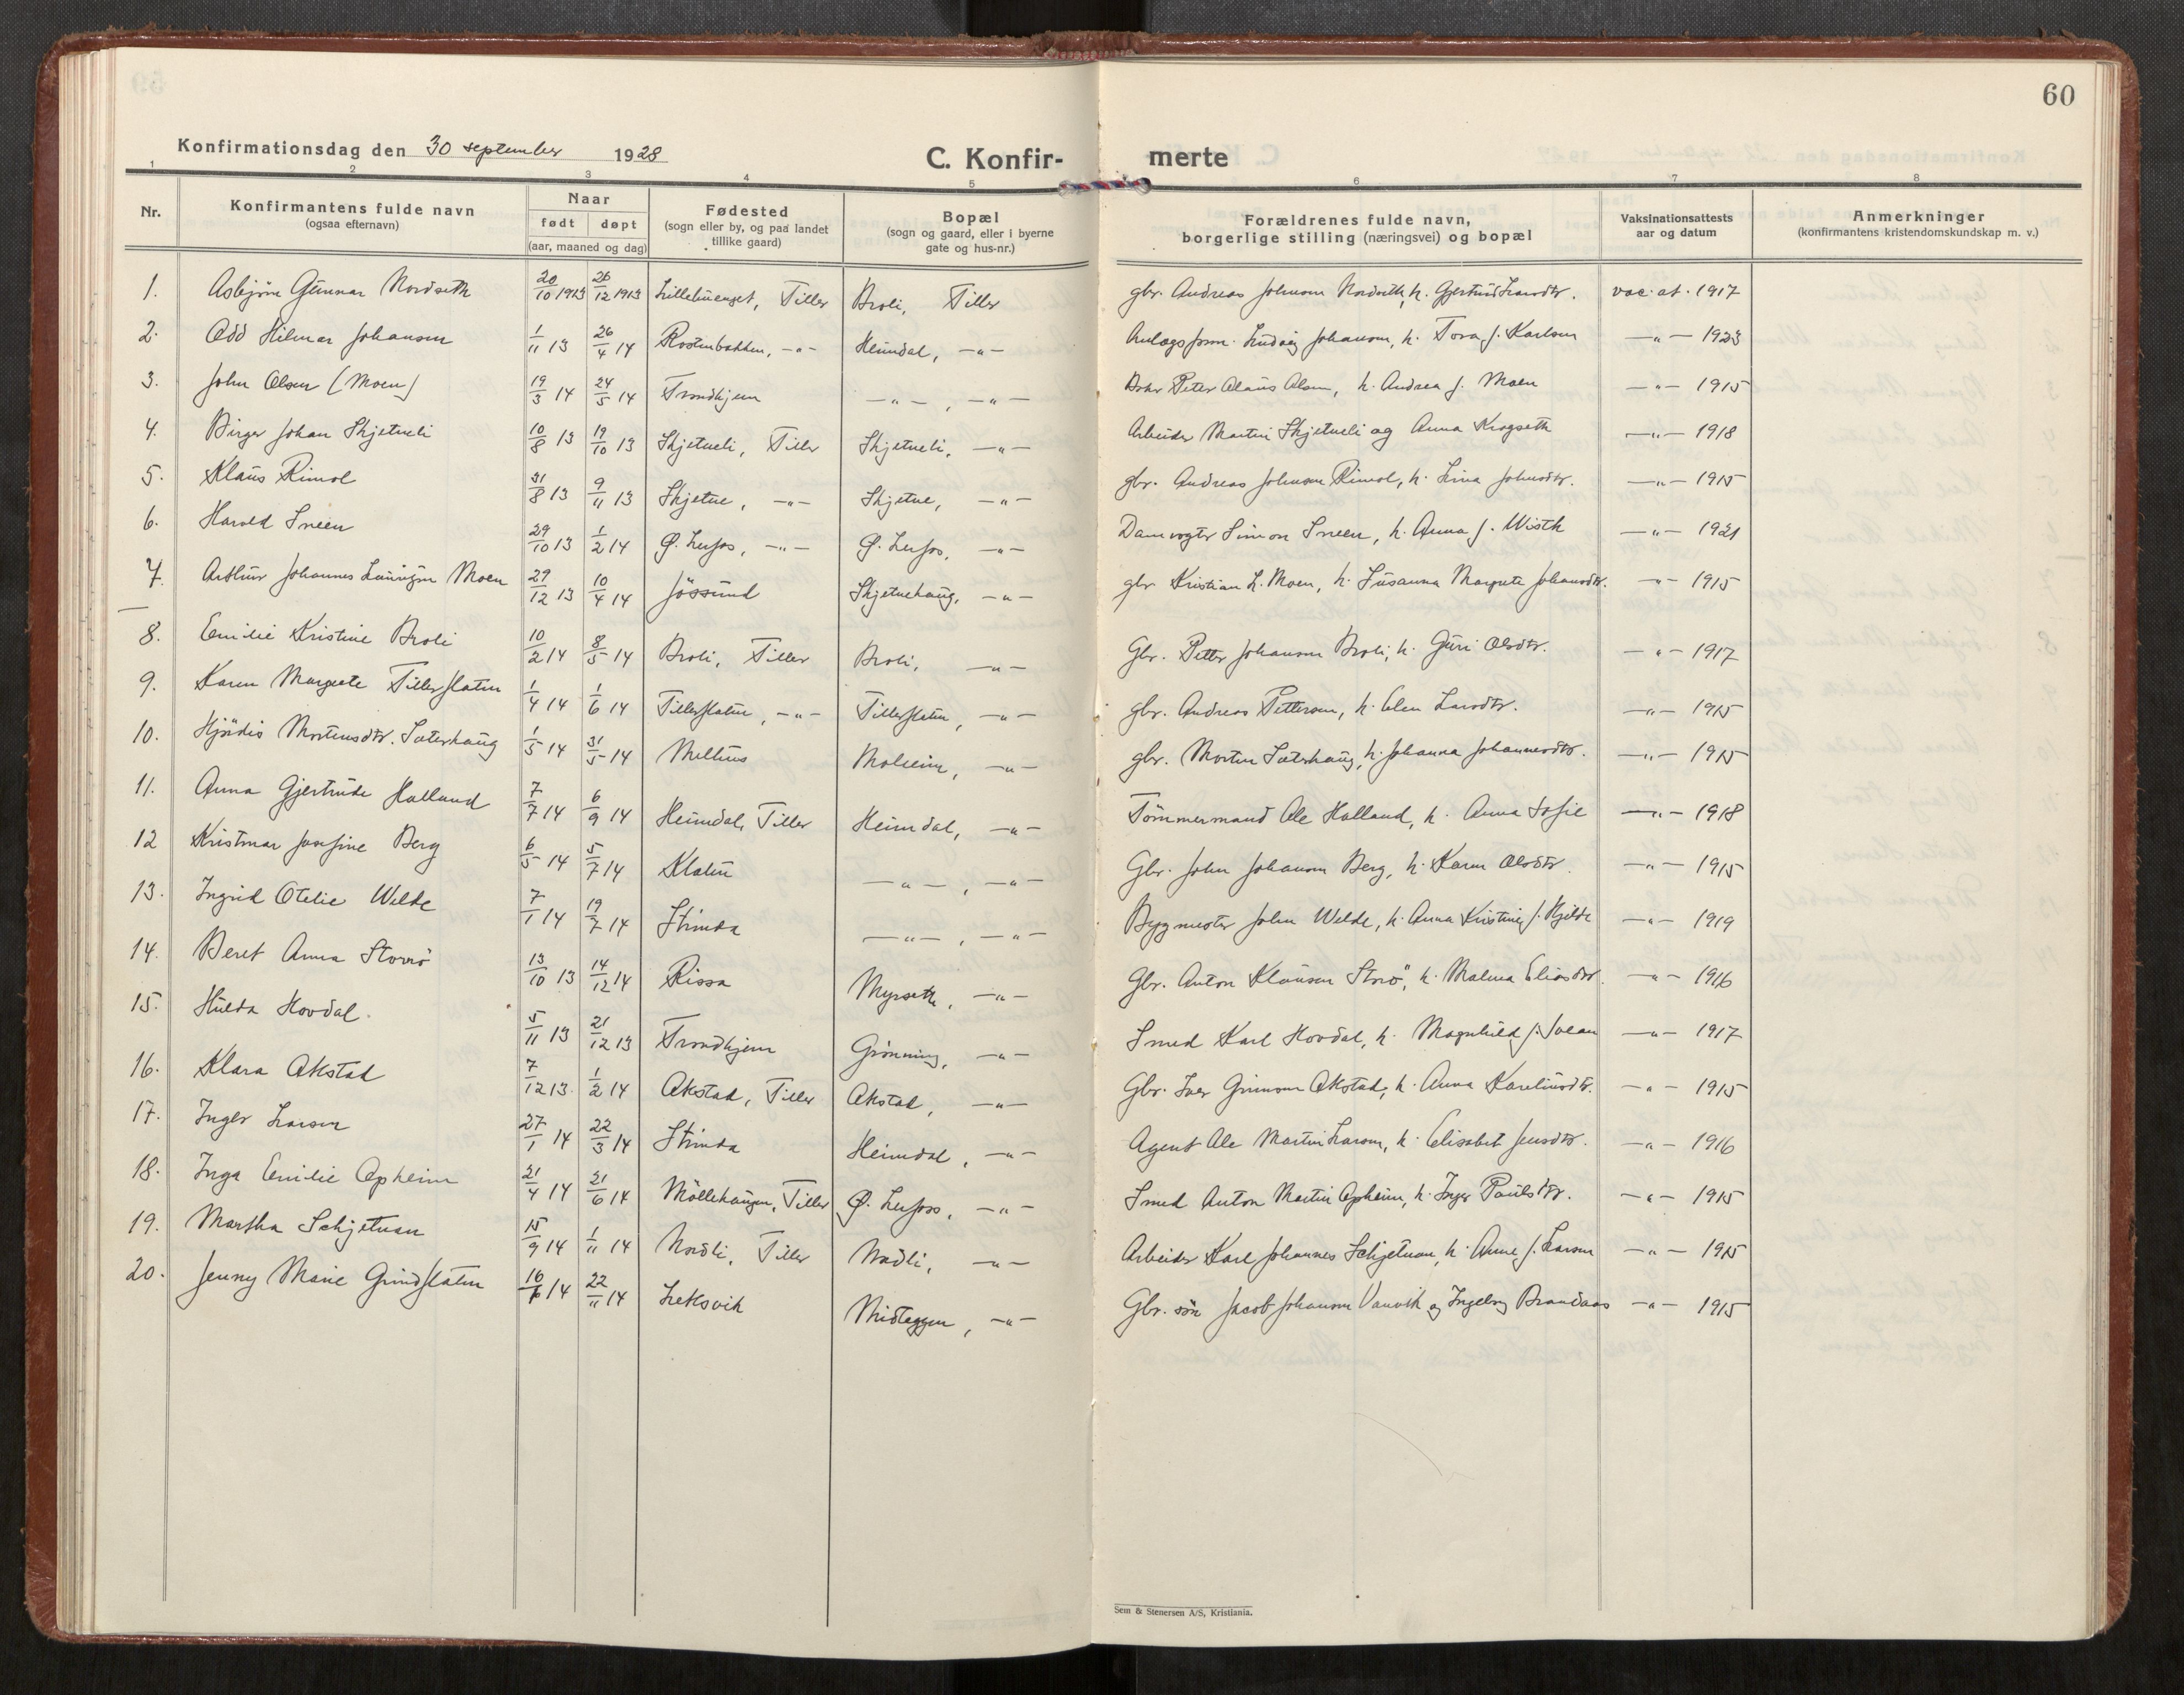 60
Konfirmationsdag den 30 september 1928
C. Konfir- merte
1 2 3 4 5 6 7 8
Nr.
Konfirmantens fulde navn
(ogsaa efternavn)
Naar
født døpt
(aar, maaned og dag)
Fødested
(sogn eller by, og paa landet
tillike gaard)
Bopæl
(sogn og gaard, eller i byerne
gate og hus-nr.)
Forældrenes fulde navn,
borgerlige stilling (næringsvei) og bopæl
Vaksinationsattests
aar og datum
Anmerkninger
(konfirmantens kristendomskundskap m. v.)
1. Asbjörn Gunnar Nordseth 20/10 1913 26/12 1913 Tiller Broli, Tiller gbr. Andreas Johnsen Nordseth, h. Gjertrud Larsdtr. vac. at. 1917
2. Odd Hilmar Johansen 1/11 13 26/4 14 Rostenbakken, -"- Heimdal, -"- Anlægsform. Ludvig Johansen, h. Tora f. Karlsen -"- 1923
3. John Olsen (Moen) 19/3 14 24/5 14 Trondhjem -"-, -"- Peter Olaus Olsen, h. Andrea f. Moen -"- 1915
4. Birger Johan Skjetneli 10/8 13 19/10 13 Skjetneli, Tiller Skjetneli, -"- Arbeider Martin Skjetneli og Anna Krogseth -"- 1918
5. Klaus Rimol 31/8 13 9/11 13 Skjetne, -"- Skjetne, -"- gbr. Andreas Johnsen Rimol, h. Lina Johnsdtr. -"- 1915
6. Harald Sneen 29/10 13 1/2 14 Ø. Lerfos, -"- Ø. Lerfos, -"- Damvogter Simon Sneen, h. Anna f. Wisth -"- 1921
7. Arthur Johannes Moen 29/12 13 10/4 14 Jössund Skjetnehaug, -"- gbr Kristian L. Moen, h. Susanna Margrete Johansdtr. -"- 1915
8. Emilie Kristine Broli 10/2 14 8/5 14 Broli, Tiller Broli, -"- Gbr. Petter Johansen Broli, h. Guri Olsdtr. -"- 1917
9. Karen Margrete Tillerflaten 1/4 14 1/6 14 Tillerflaten, -"- Tillerflaten, -"- gbr. Andreas Pettersen, h. Elen Larsdtr. -"- 1915
10. Hjördis Mortensdtr. Sæterhaug 1/5 14 31/5 14 Melhus Molheim, -"- gbr. Morten Sæterhaug, h. Johanna Johannesdtr. -"- 1915
11. Anna Gjertrude Halland 7/7 14 6/9 14 Heimdal, Tiller Heimdal, -"- Tömmermand Ole Halland, h. Anna Sofie -"- 1918
12 Kristmar Josefine Berg 6/5 14 5/7 14 Klæbu -"-, -"- Gbr. John Johansen Berg, h. Karen Olsdtr. -"- 1915
13. Ingrid Otelie Welde 7/1 14 19/7 14 Strinda -"-, -"- Bygmester John Welde, h. Anna Kristine f. Hjelde -"- 1919
14. Beret Anna Storrö 13/10 13 14/12 14 Rissa Myrseth, -"- Gbr. Anton Klausen Storrö, h. Malena Eliasdtr. -"- 1916
15. Hulda Hovdal. 5/11 13 21/12 13 Trondhjem Grönning, -"- Smed Karl Hovdal, h. Magnhild f. -"- 1917
16. Klara Okstad 7/12 13. 1/2 14 Okstad, Tiller Okstad, -"- Gbr. Iver Okstad, h. Anna Kareliusdtr. -"- 1915
17. Inger Larsen 27/1 14 22/3 14 Strinda Heimdal, -"- Agent Ole Martin Larsen, h. Elisabet Jensdtr. -"- 1916
18. Inga Emilie Opheim 21/4 14 21/6 14 Möllehaugen, Tiller Ø. Lerfoss, -"- Smed Anton Martin Opheim, h. Inger Paulsdtr. -"- 1915
19. Martha Schjetnan 15/9 14 1/11 14 Nordli, Tiller Nordli, -"- Arbeider Karl Johannes Schjetnan, h. Anne f. Larsen -"- 1915
20. Jenny Marie Grindflaten 16/ 14 22/11 14 Leksvik Midteggen, -"- Gbr. sön Jacob Johansen Vanvik og Ingeborg Brandaas -"- 1915
Sem & Stenersen A/S, Kristiania.